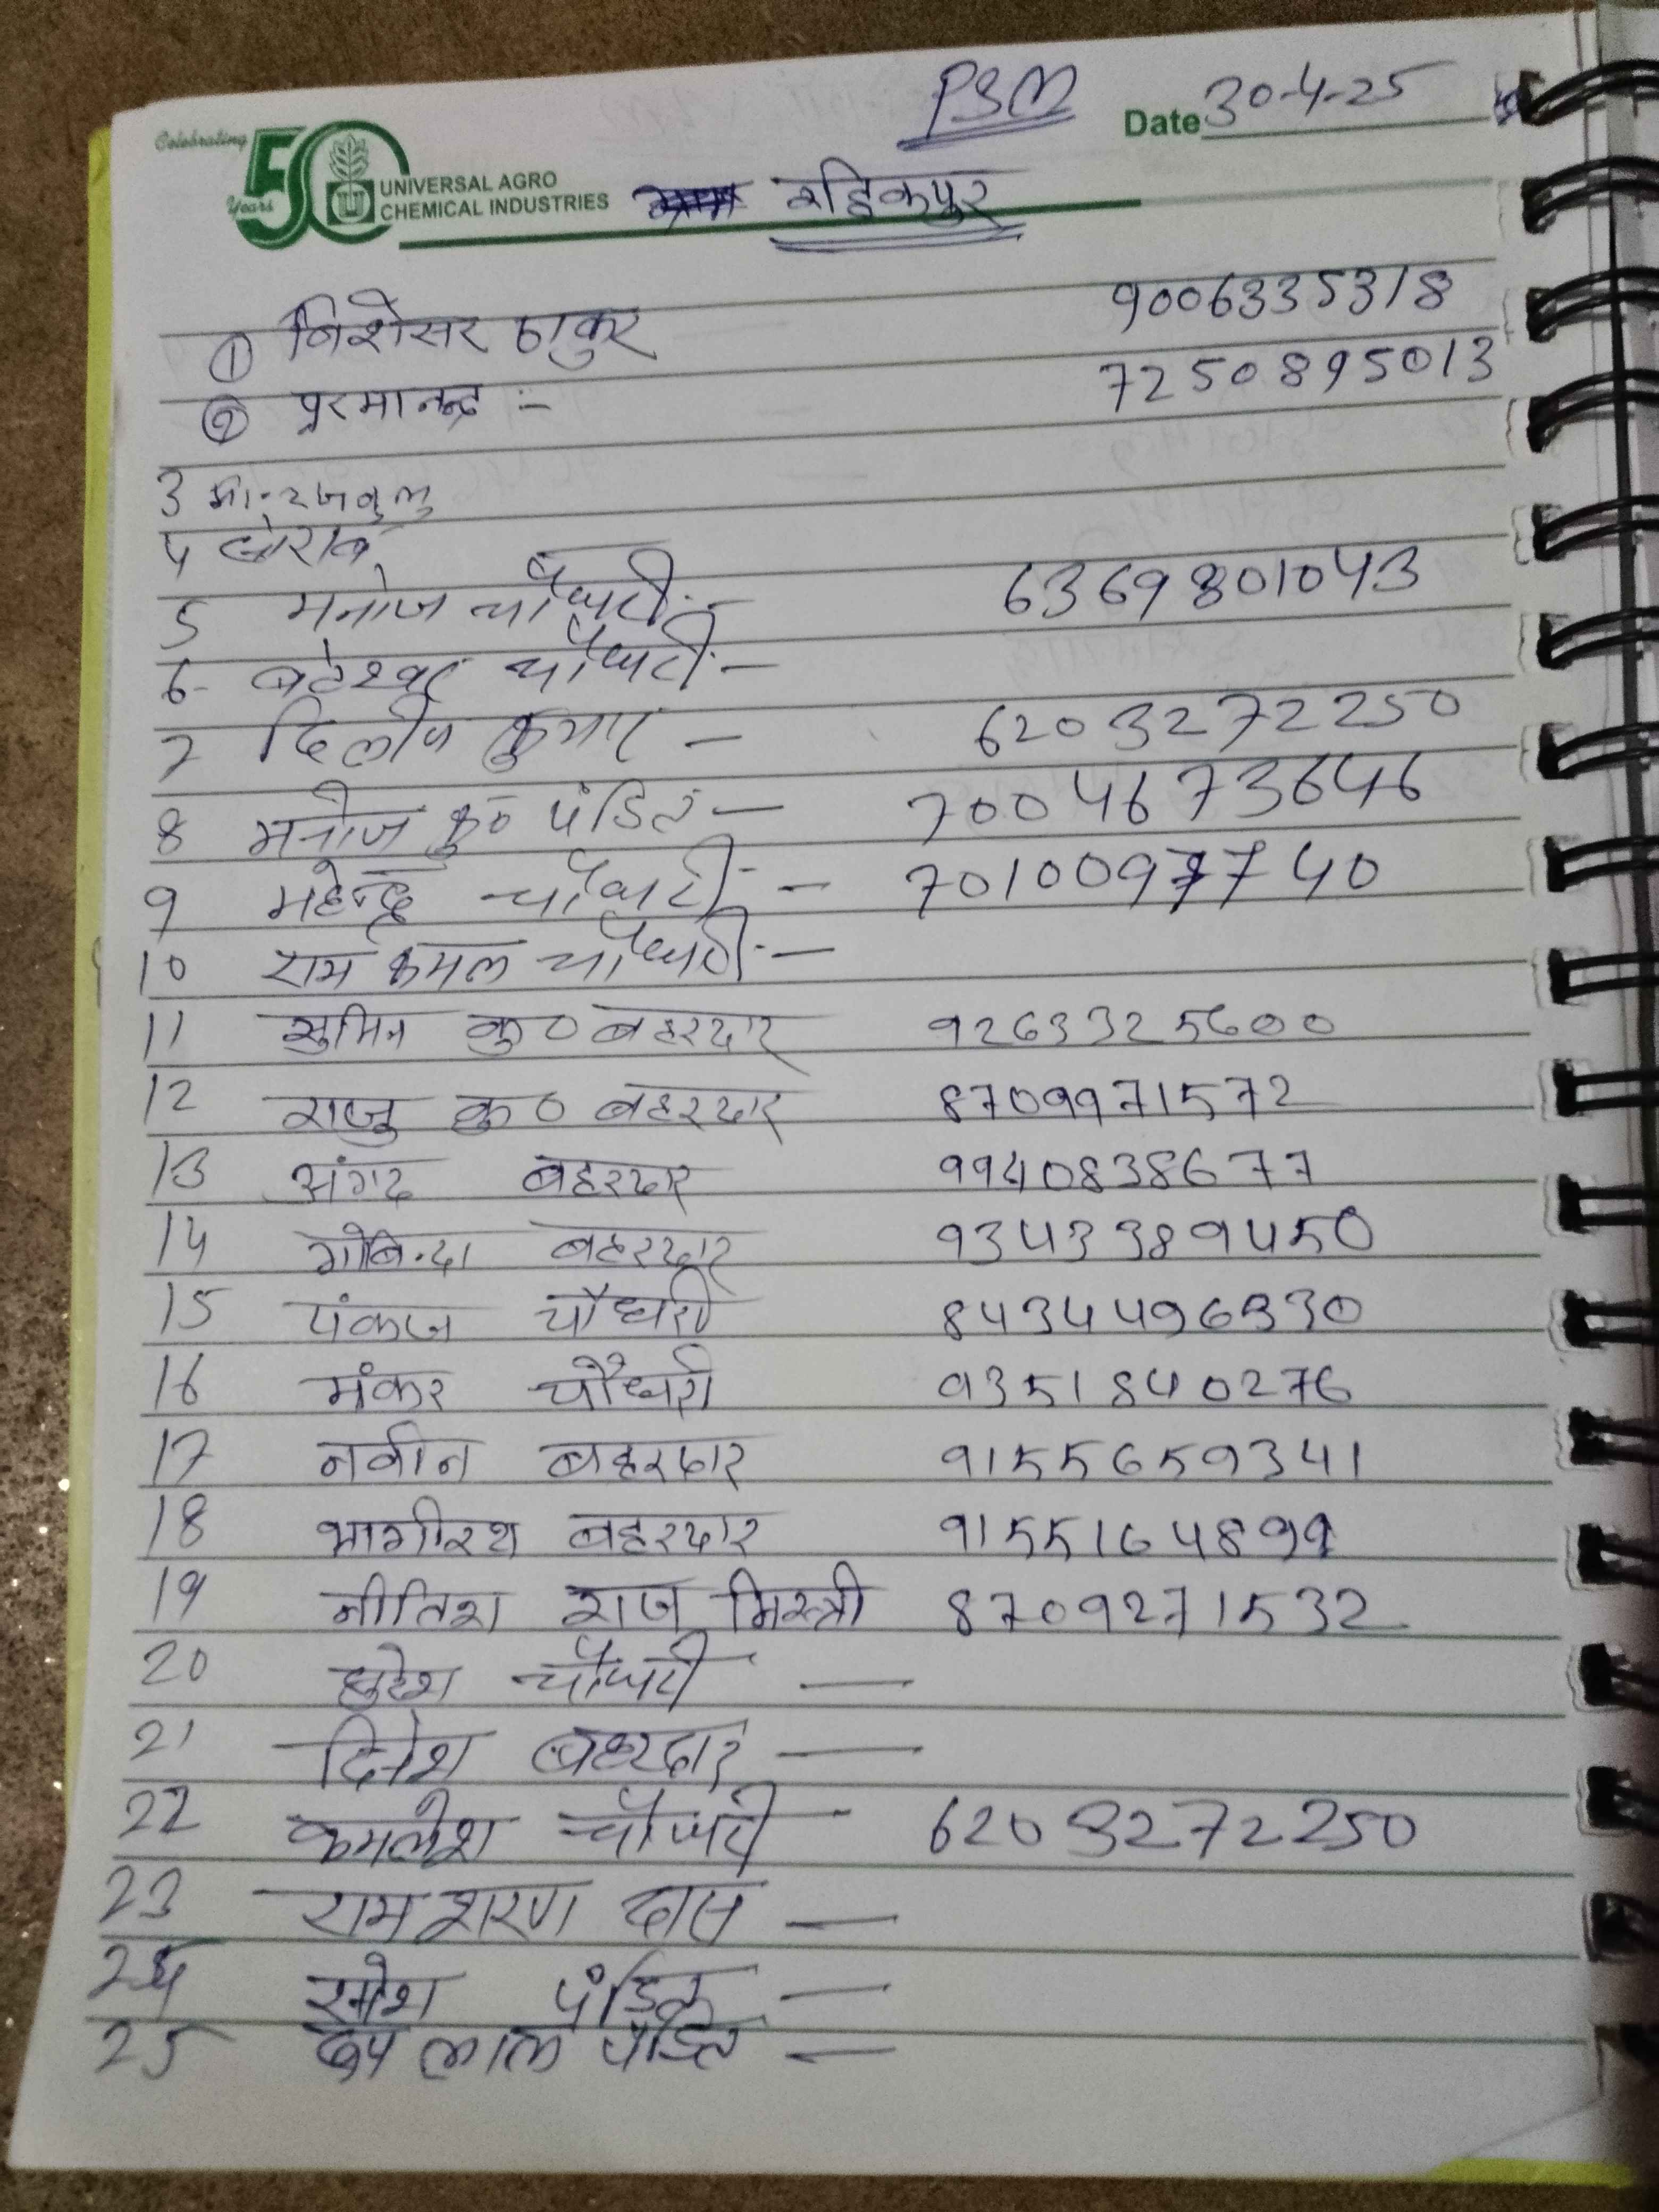 PSM
Date 30-4-25
Celebrating 50 Years
UNIVERSAL AGRO
CHEMICAL INDUSTRIES
रहिकपुर
① विशेसर ठाकुर 9006335318
② परमानन्द :- 7250895013
3
4
5 मनोज चौधरी :- 6369801043
6- बटेश्वर चौधरी :-
7 दिलीप कुमार - 6203272250
8 मनोज कु० पंडित - 7004673646
9 महेन्द्र चौधरी :- 7010097740
10 राम कमल चौधरी :-
11 सुमित कु० बहरदार 9263325600
12 राजु कु० बहरदार 8709971572
13 अंगद बहरदार 9940838677
14 गोबिन्दा बहरदार 9343389450
15 पंकज चौधरी 8434496930
16 मंकर चौधरी 9351840276
17 नवीन बहरदार 9155659341
18 भागीरथ बहरदार 9155164899
19 नीतिश राज मिस्त्री 8709271532
20 सुरेश चौधरी —
21 दिनेश बहरदार —
22 कमलेश चौधरी - 6203272250
23 राम शरण दास —
24 रमेश पंडित —
25 लाल पंडित —